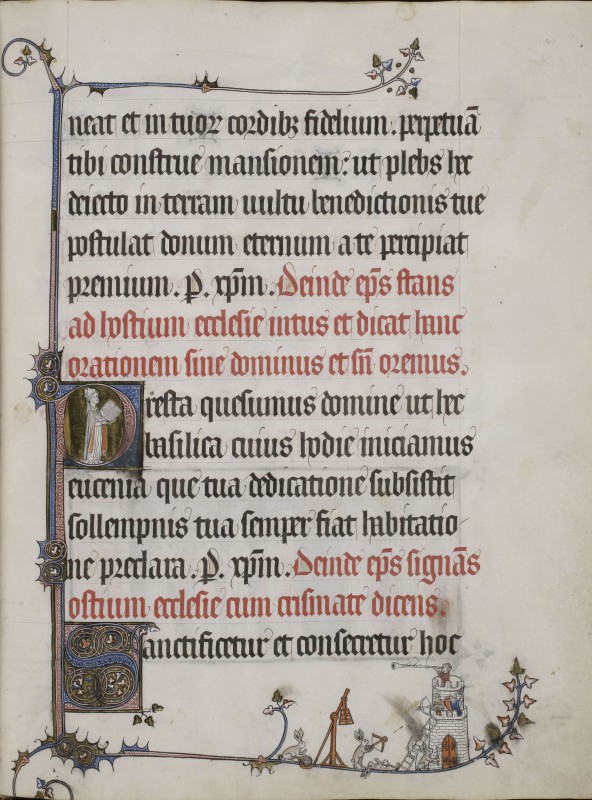 neat et in tuoꝝ cordibꝫ fidelium. perpetuā
tibi construe mansionem: ut plebs hec
deiecto in terram uultu benedictionis tue
postulat donum eternum a te percipiat
premium. P. xp̄m. Deinde ep̄s stans
ad hostium ecclesie intus et dicat hanc
orationem sine dominus et sn̄ oremus.
Presta quesumus domine ut hec
basilica cuius hodie iniciamus
eucenia que tua dedicatione subsistit
sollempnis tua semper fiat habitatio-
ne preclara. P. xp̄m. Deinde ep̄s signās
ostium ecclesie cum crismate dicens.
Sanctificetur et consecretur hoc